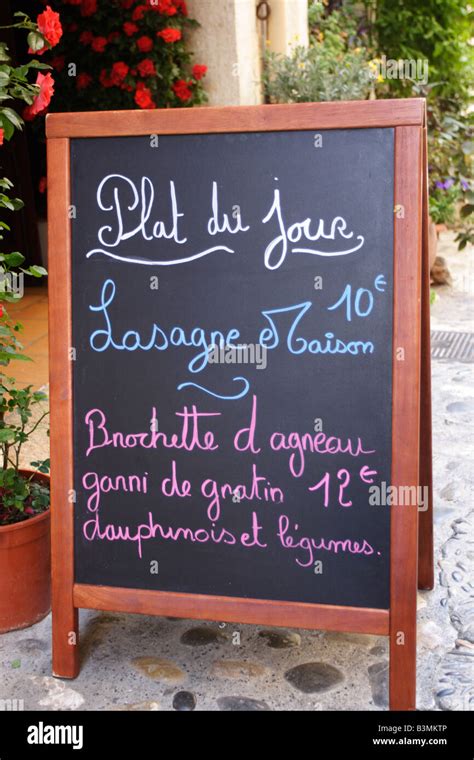 Plat du jour
Lasagne Maison 10€
Brochette d agneau
garni de gratin 12€
dauphinois et légumes.
alamy
alamy
Image ID: B3MKTP
www.alamy.com